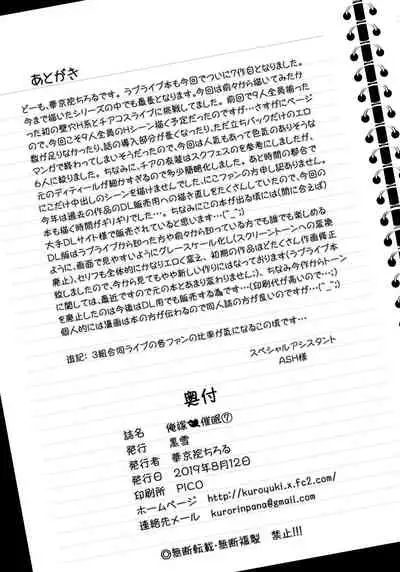 あとがき
どーも、華京院ちろるです。ラブライブ本も今回でついに7作目となりました。
今まで描いたシリーズの中でも最長となります。今回は前々から描いてみたか
った初の壁穴H系とチアコスライブに挑戦してました。前回で9人全員揃った
ので、今回こそ9人全員のHシーン描く予定だったのですが…さすがにページ
数が足りなかったり、話の導入部分が長くなったり、ただ立ちバックだけのエロ
マンガで終わってしまいそうだったので、今回は人気もあって色気のありそうな
6人に絞りました。ちなみに、チアの衣装はスクフェスのを参考にしましたが、
元のディティールが細かすぎるので多少簡略化しました。あと時間の都合で
にこだけ中出しのシーンを描けませんでした、にこファンの方申し訳ありません。
今年は過去の作品のDL販売用への描き直しをたくさんしていたので、今回の
本も描く時間がギリギリでした…。ちなみにこの本が出る頃には(間に合えば)
大手DLサイト様で販売されていると思います…(^_^;)
DL版はラブライブから知った方や前々から知っている方でも誰でも楽しめる
ように、画面で見やすいようにグレースケール化し(スクリーントーンへの変換
廃止)、セリフも全体的にかなりエロく変え、初期の作品ほどたくさん作画修正
しましたので、今から見てもやや新しい作りにはなっております(ラブライブ本
に関しては、最近ですので元の本とあまり変わりません;)、ちなみ今作からトーン
を廃止したのは今後はDL用でも販売する為です…(印刷代が高いので…;)
個人的には漫画は本の方が伝わるので同人誌の方が良いのですが…(^_^;)
追記:3組合同ライブの各ファンの比率が気になるこの頃です…
スペシャルアシスタント
ASH様
奥付
誌名 俺嫁催眠⑦
発行 黒雪
発行者 華京院ちろる
発行日 2019年8月12日
印刷所 PICO
ホームページ http://kuroyuki.x.fc2.com/
連絡先メール kurorinpana@gmail.com
◎無断転載・無断複製 禁止!!!